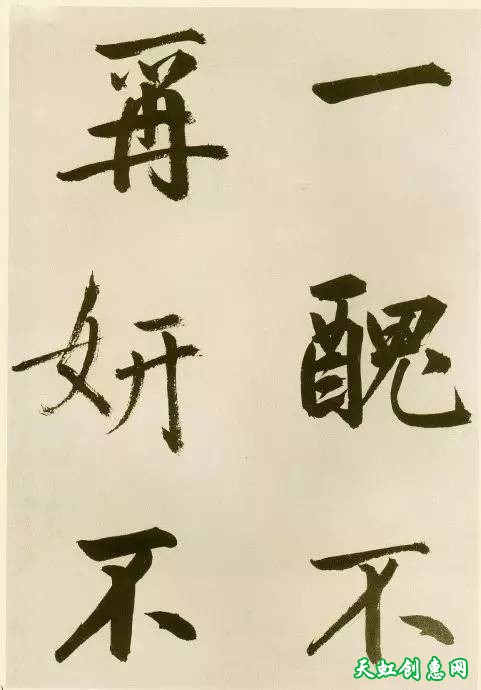 一醜不
再妍不
天虹创意网